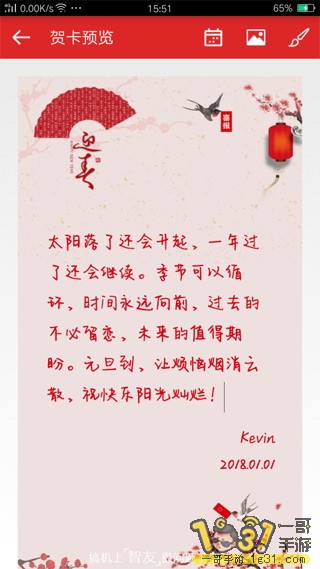 0.00K/s
15:51
65%
贺卡预览
迎春
喜报
太阳落了还会升起，一年过
了还会继续。季节可以循
环，时间永远向前，过去的
不必留恋，未来的值得期
盼。元旦到，让烦恼烟消云
散，祝快乐阳光灿烂！
Kevin
2018.01.01
搞机上「智友
1g31 一哥
手游
一哥手游-1g31.com